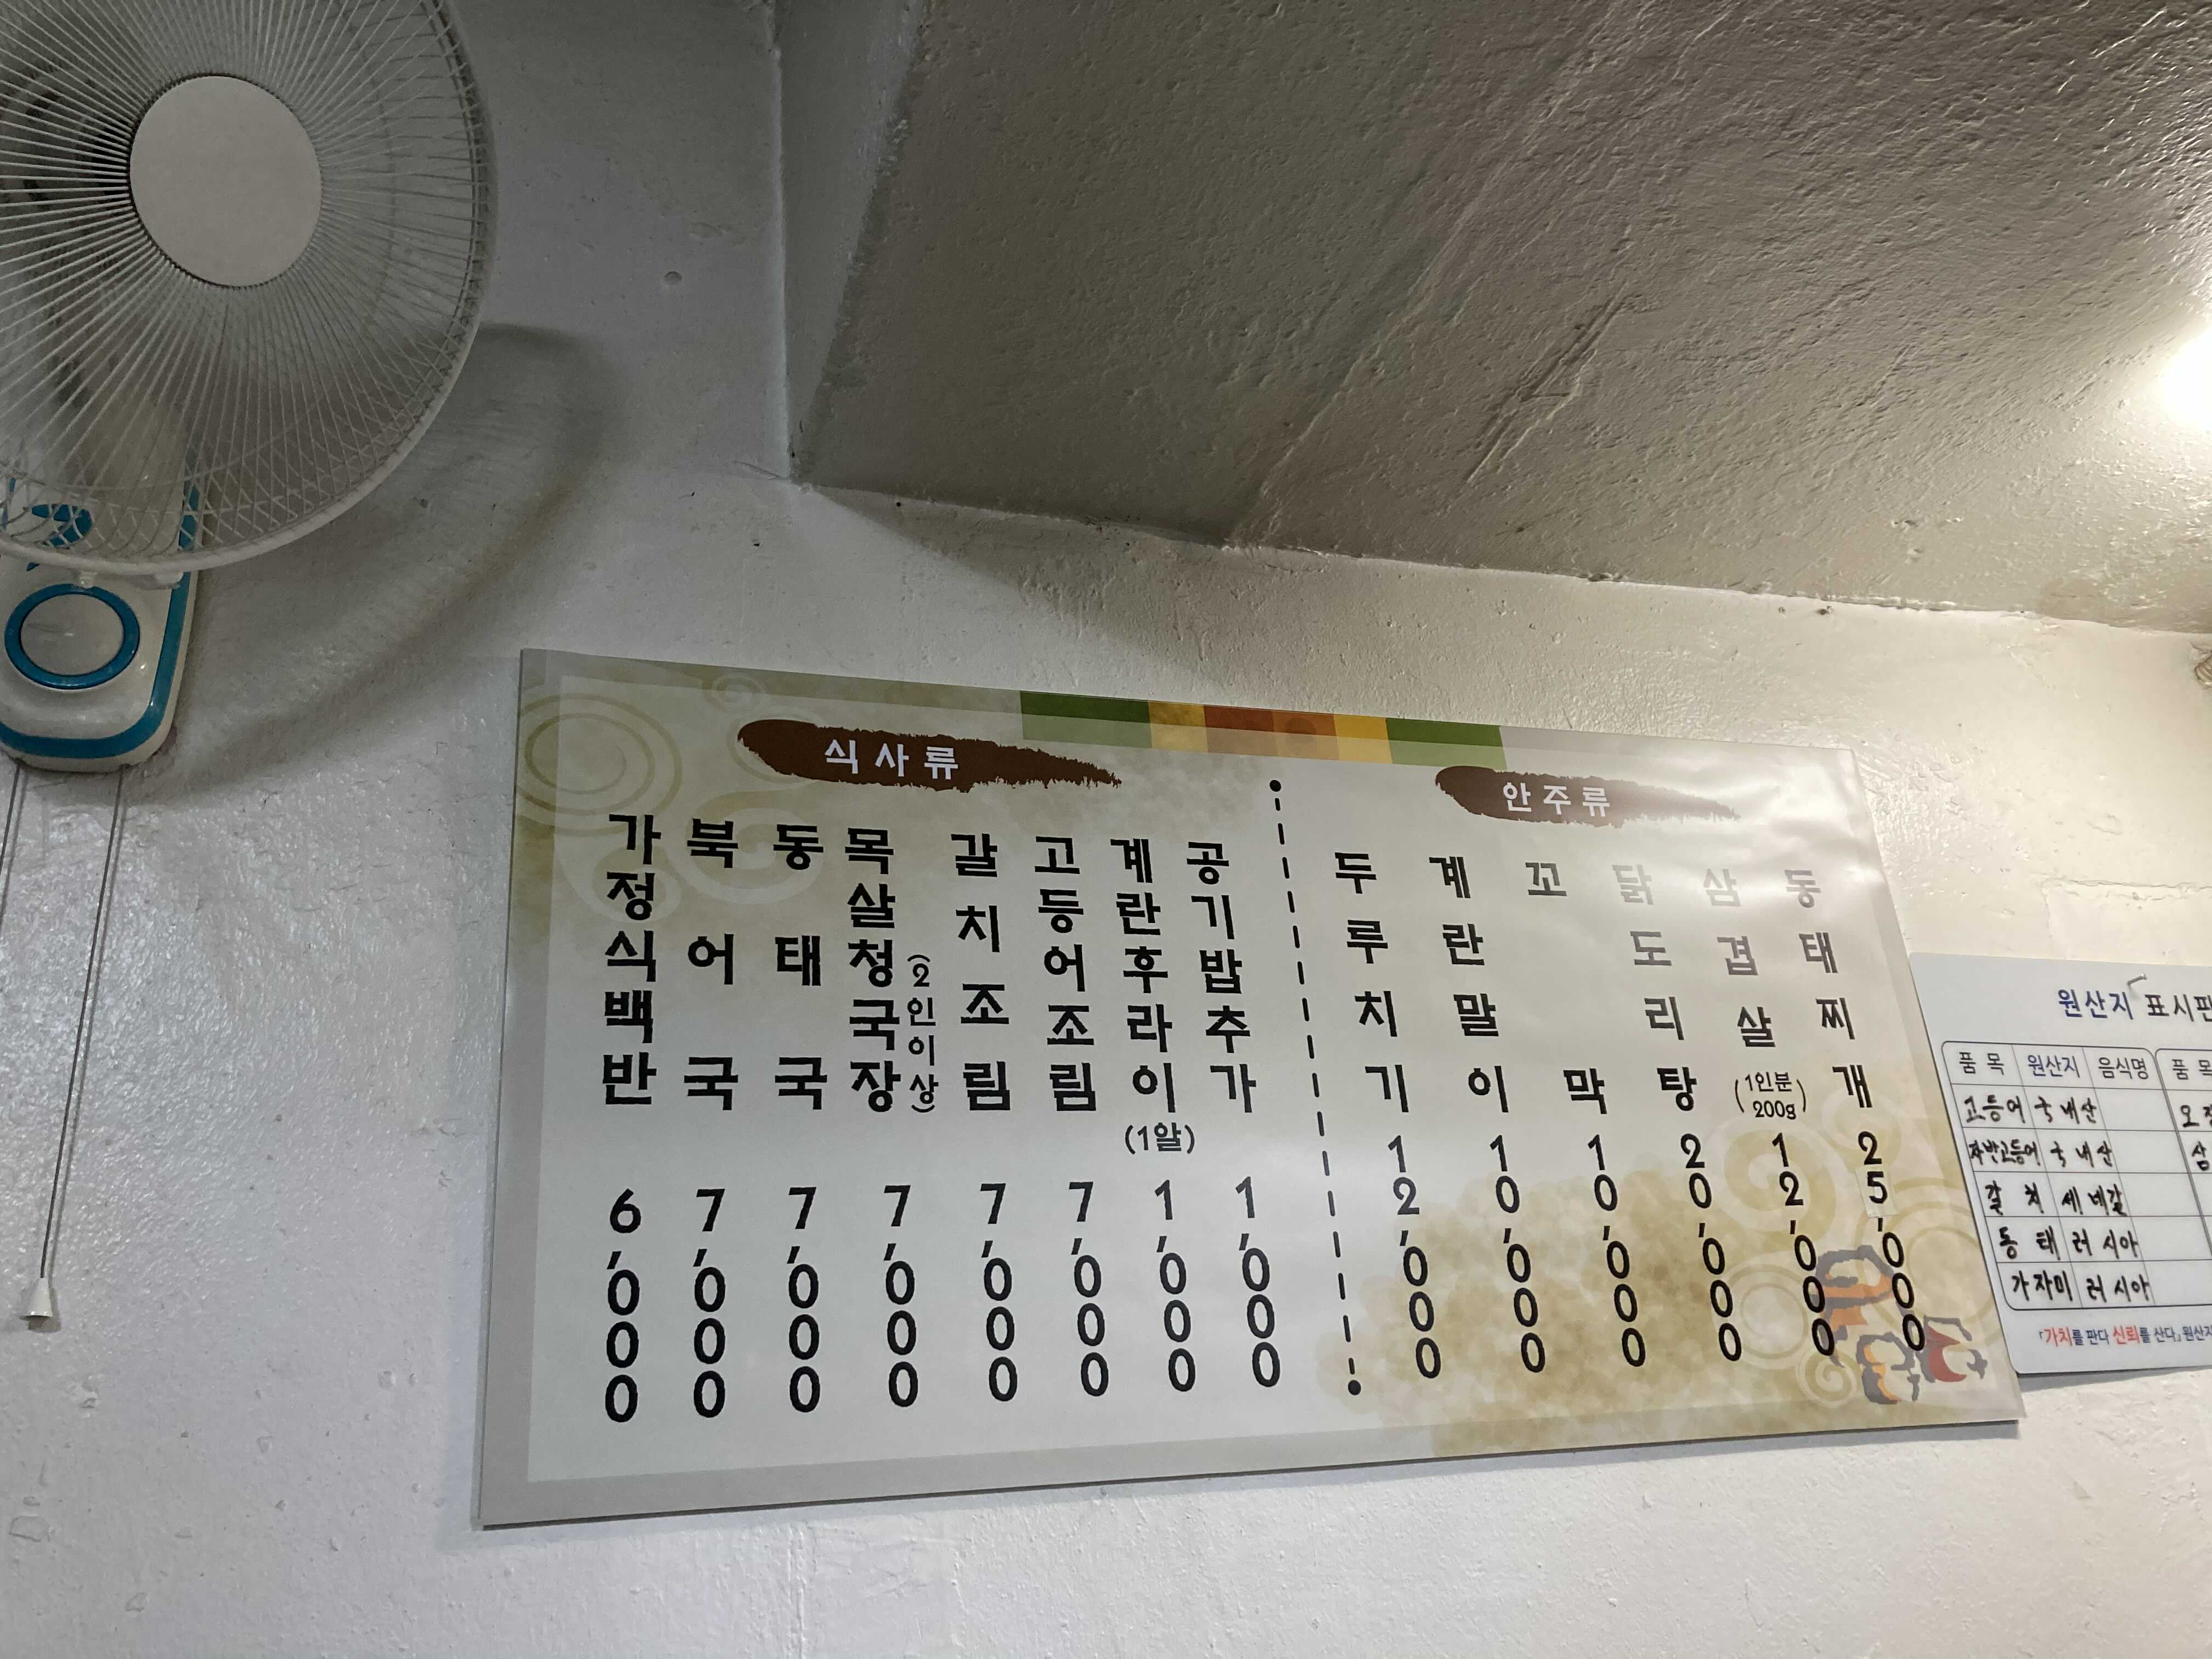 식사류
가정식백반 6,000
북어국 7,000
동태국 7,000
목살청국장 (2인이상) 7,000
갈치조림 7,000
고등어조림 7,000
계란후라이 (1알) 1,000
공기밥추가 1,000
안주류
두루치기 12,000
계란말이 10,000
꼬막 10,000
닭도리탕 20,000
삼겹살 (1인분 200g) 12,000
동태찌개 25,000
원산지 표시판
품목 원산지 음식명 품목
고등어 국내산
자반고등어 국내산
갈치 세네갈
동태 러시아
가자미 러시아
「가치를 판다 신뢰를 산다」 원산지